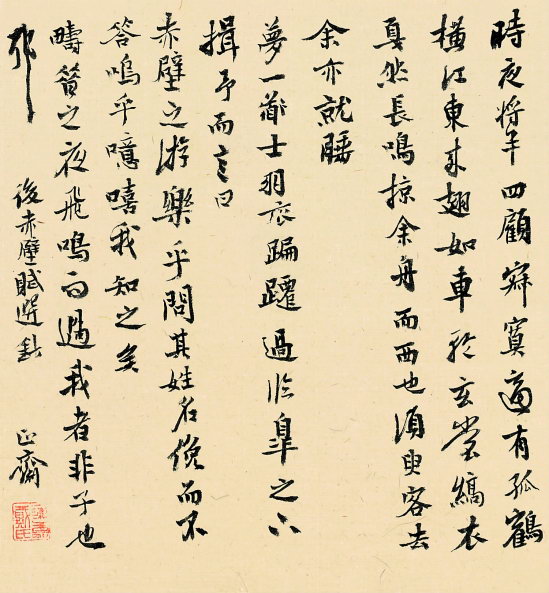 時夜将半四顧寂寥適有孤鶴
橫江東来翅如車輪玄裳縞衣
戛然長鳴掠余舟而西也須臾客去
余亦就睡
夢一道士羽衣蹁躚過臨皋之下
揖予而言曰
赤壁之游樂乎問其姓名俛而不
答嗚乎噫嘻我知之矣
疇昔之夜飛鳴而過我者非子也
耶
後赤壁賦選鈔 正齋